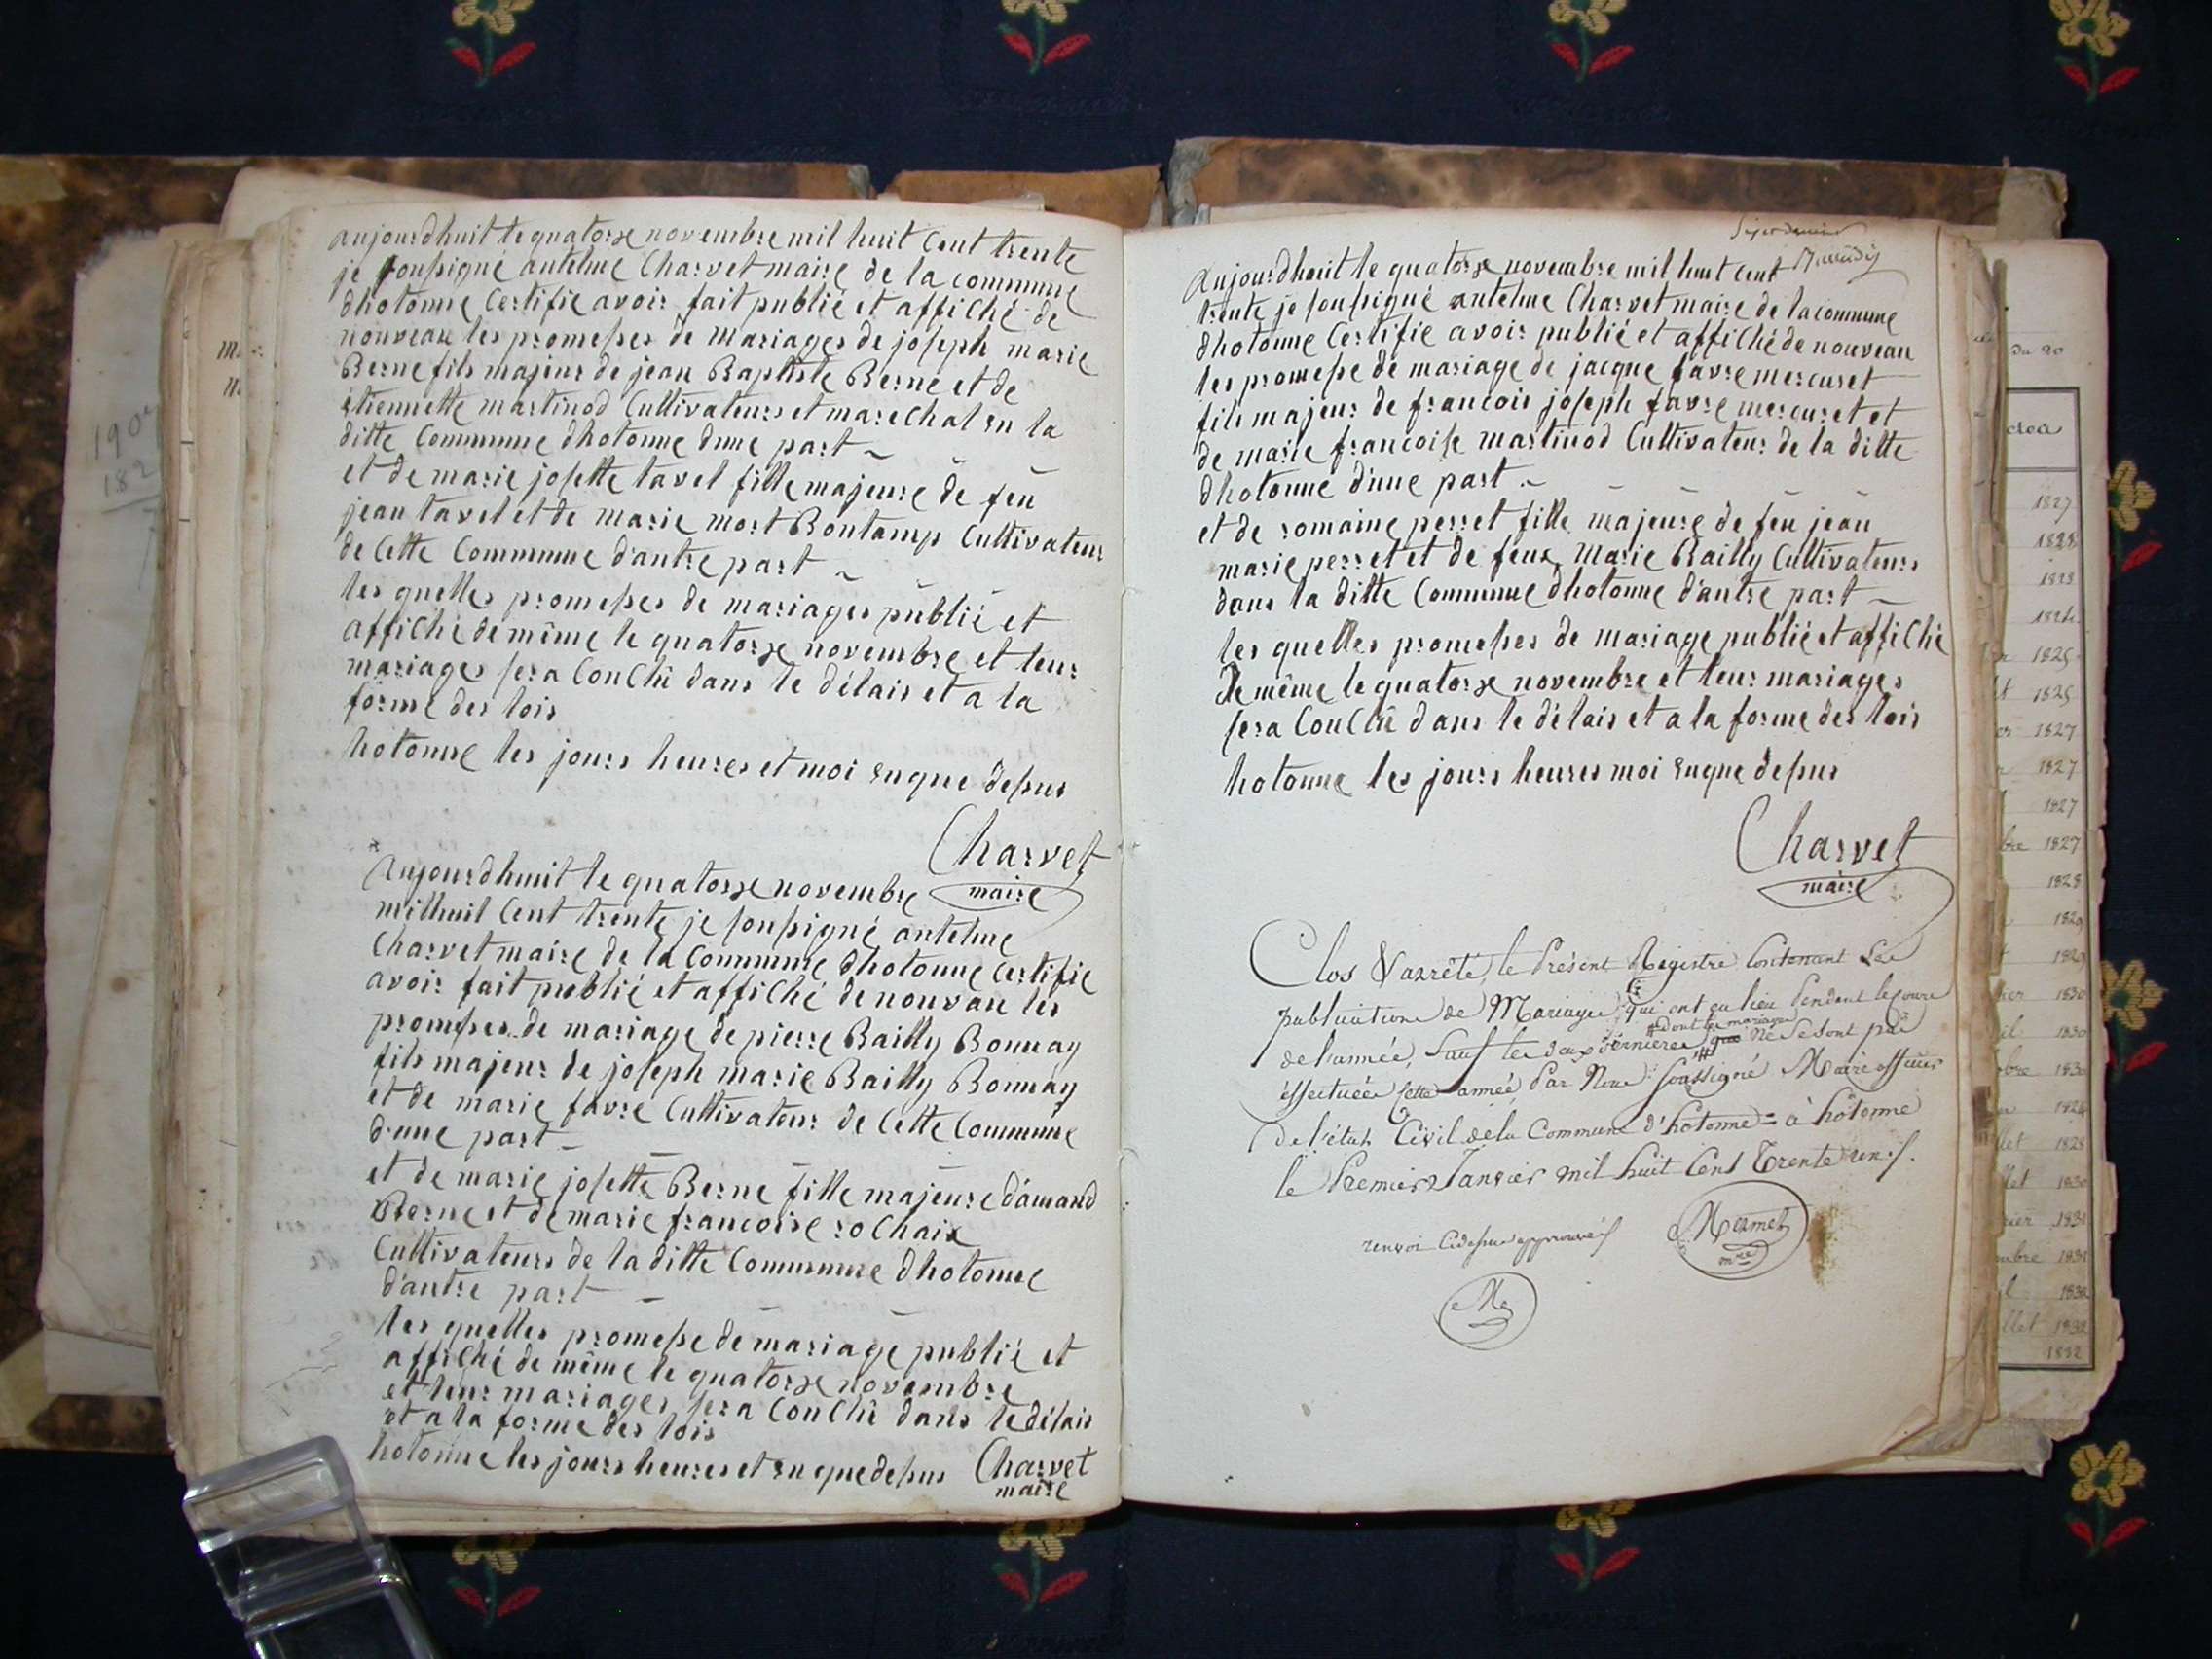 aujourdhuit le quatorze novembre mil huit Cent trente
je soussigné antelme Charvet maire de la commune
dhotonne Certifie avoir fait publié et affiché de
nouveau les promesses de mariages de joseph marie
Berne fils majeur de jean Baptiste Berne et de
etiennette martinod Cultivateurs et marechal en la
ditte Commune dhotonne dune part ~
et de marie josette tavel fille majeure de feu
jean tavel et de marie mort Bontamps Cultivateur
de Cette Commune dautre part ~
les quelles promesses de mariages publié et
affiché de même le quatorze novembre et leur
mariages sera Conclû dans le délais et a la
forme des lois
hotonne les jours heures et moi en que dessus
Charvet
maire
Aujourdhuit le quatorze novembre
mil huit Cent trente je soussigné antelme
Charvet maire de la Commune dhotonne Certifie
avoir fait publié et affiché de nouvau les
promesses de mariage de pierre Bailly Bonnay
fils majeur de joseph marie Bailly Bonnay
et de marie favre Cultivateur de Cette Commune
d'une part -
et de marie josette Berne fille majeure d'amand
Berne et de marie francoise rochaix
Cultivateurs de la ditte Commune dhotonne
d'autre part -
les quelles promesse de mariage publié et
affiché de même le quatorze novembre
et leur mariages sera Conclû dans le délais
et a la forme des lois
hotonne les jours heures et en que dessus Charvet
maire
Aujourdhuit le quatorze novembre mil huit Cent
trente je soussigné antelme Charvet maire de la commune
dhotonne Certifie avoir publié et affiché de nouveau
les promesse de mariage de jacque favre mercuret
fils majeur de francois joseph favre mercuret et
de marie francoise martinod Cultivateur de la ditte
dhotonne d'une part . ~
et de romaine perret fille majeure de feu jean
marie perret et de feux marie Bailly Cultivateurs
dans la ditte Commune dhotonne d'autre part ~
les quelles promesses de mariage publié et affiché
de même le quatorze novembre et leur mariages
sera Conclû dans le délais et a la forme des lois
hotonne les jours heures moi en que dessus
Charvet
maire
Clos & arrêté, le Présent Registre Contenant Les
publications de Mariages, qui ont eu lieu Pendant le cours
de l'année, Sauf les deux dernieres # dont les mariages que Ne se sont pas
éffectuées Cette année, Par Nous Soussigné Maire officier
de l'état Civil de la Commune d'hotonne = à hotonne
le Premier Janvier mil huit Cent Trente un ./.
renvoi Cidessus approuvé
Mermet
mre
M
190
182
du 20
1827
1828
1823
1824
1825
1825
1827
1827
1827
bre 1827
1828
1829
1829
1830
1830
bre 1830
llet 1828
llet 1830
rier 1831
mbre 1831
llet 1832
1832